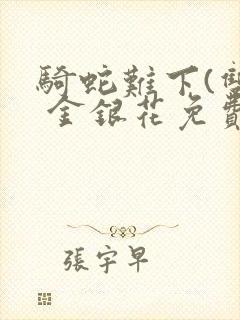 騎蛇難下(雙
金銀花免費
張宇早